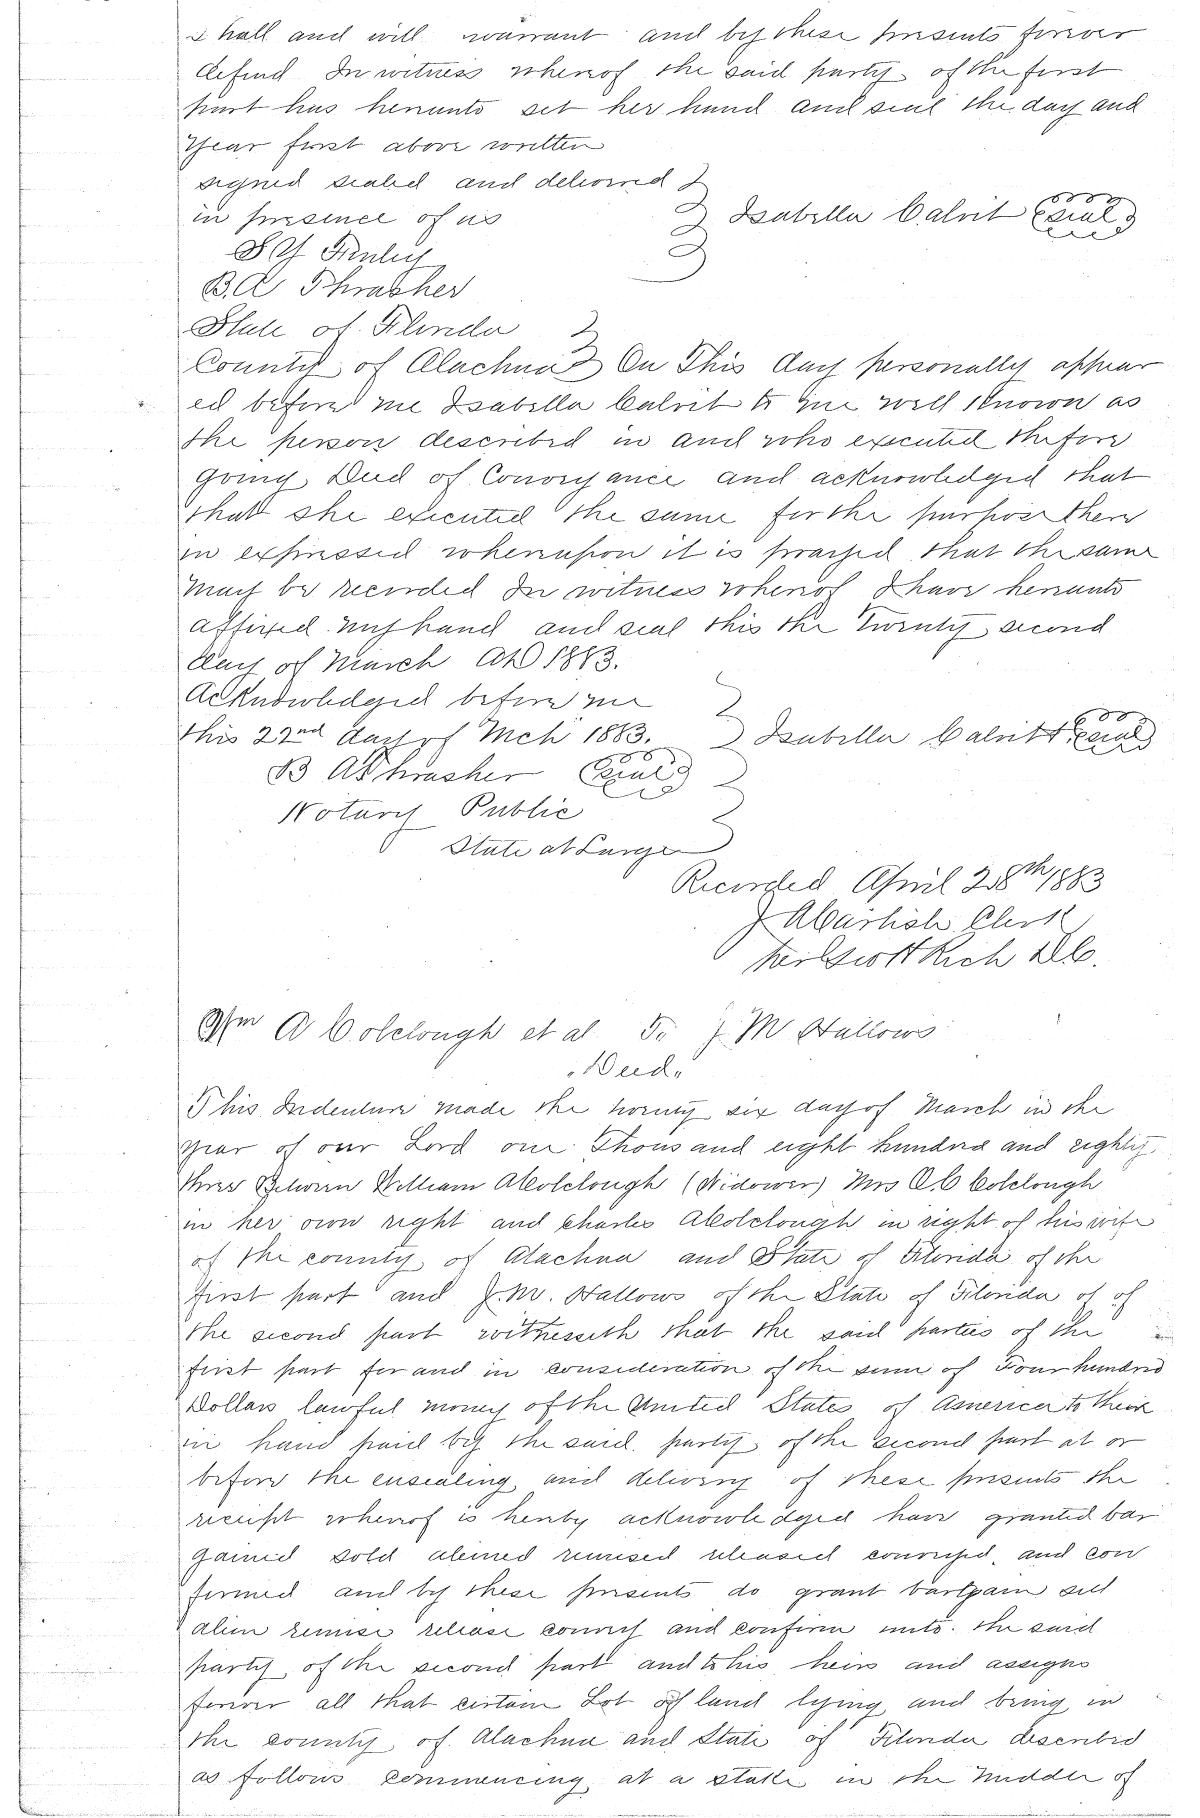 shall and will warrant and by these presents forever
defend In witness whereof the said party of the first
part has hereunto set her hand and seal the day and
Year first above written
signed sealed and delivered
in presence of us Isabella Calvit Seal
S Y Finley
B. A Thrasher
State of Florida
County of Alachua On This day personally appear
ed before me Isabella Calvit to me well Known as
the person described in and who executed the fore
going Deed of Conveyance and acknowledged that
that she executed the same for the purpose there
in expressed whereupon it is prayed that the same
May be recorded In witness whereof I have hereunto
affixed my hand and seal this the Twenty second
day of March AD 1883.
Acknowledged before me
this 22nd day of Mch 1883. Isabella Calvit Seal
B A Thrasher Seal
Notary Public
State at Large
Recorded April 28th 1883
J A Carlisle Clerk
per Scott Rich D.C.
Wm A Colclough et al To J. M Hallows
"Deed"
This Indenture made the twenty six day of March in the
year of our Lord one Thousand eight hundred and eighty
three Between William A Colclough (Widower) Mrs A. C Colclough
in her own right and Charles A Colclough in right of his wife
of the county of Alachua and State of Florida of the
first part and J. M. Hallows of the State of Florida of of
the second part witnesseth that the said parties of the
first part for and in consideration of the sum of Four hundred
Dollars lawful money of the United States of America to their
in hand paid by the said party of the second part at or
before the ensealing and delivery of these presents the
receipt whereof is hereby acknowledged have granted bar
gained sold aliened remised released conveyed and con
firmed and by these presents do grant bargain sell
alien remise release convey and confirm unto the said
party of the second part and to his heirs and assigns
forever all that certain Lot of land lying and being in
the county of Alachua and State of Florida described
as follows commencing at a stake in the Middle of